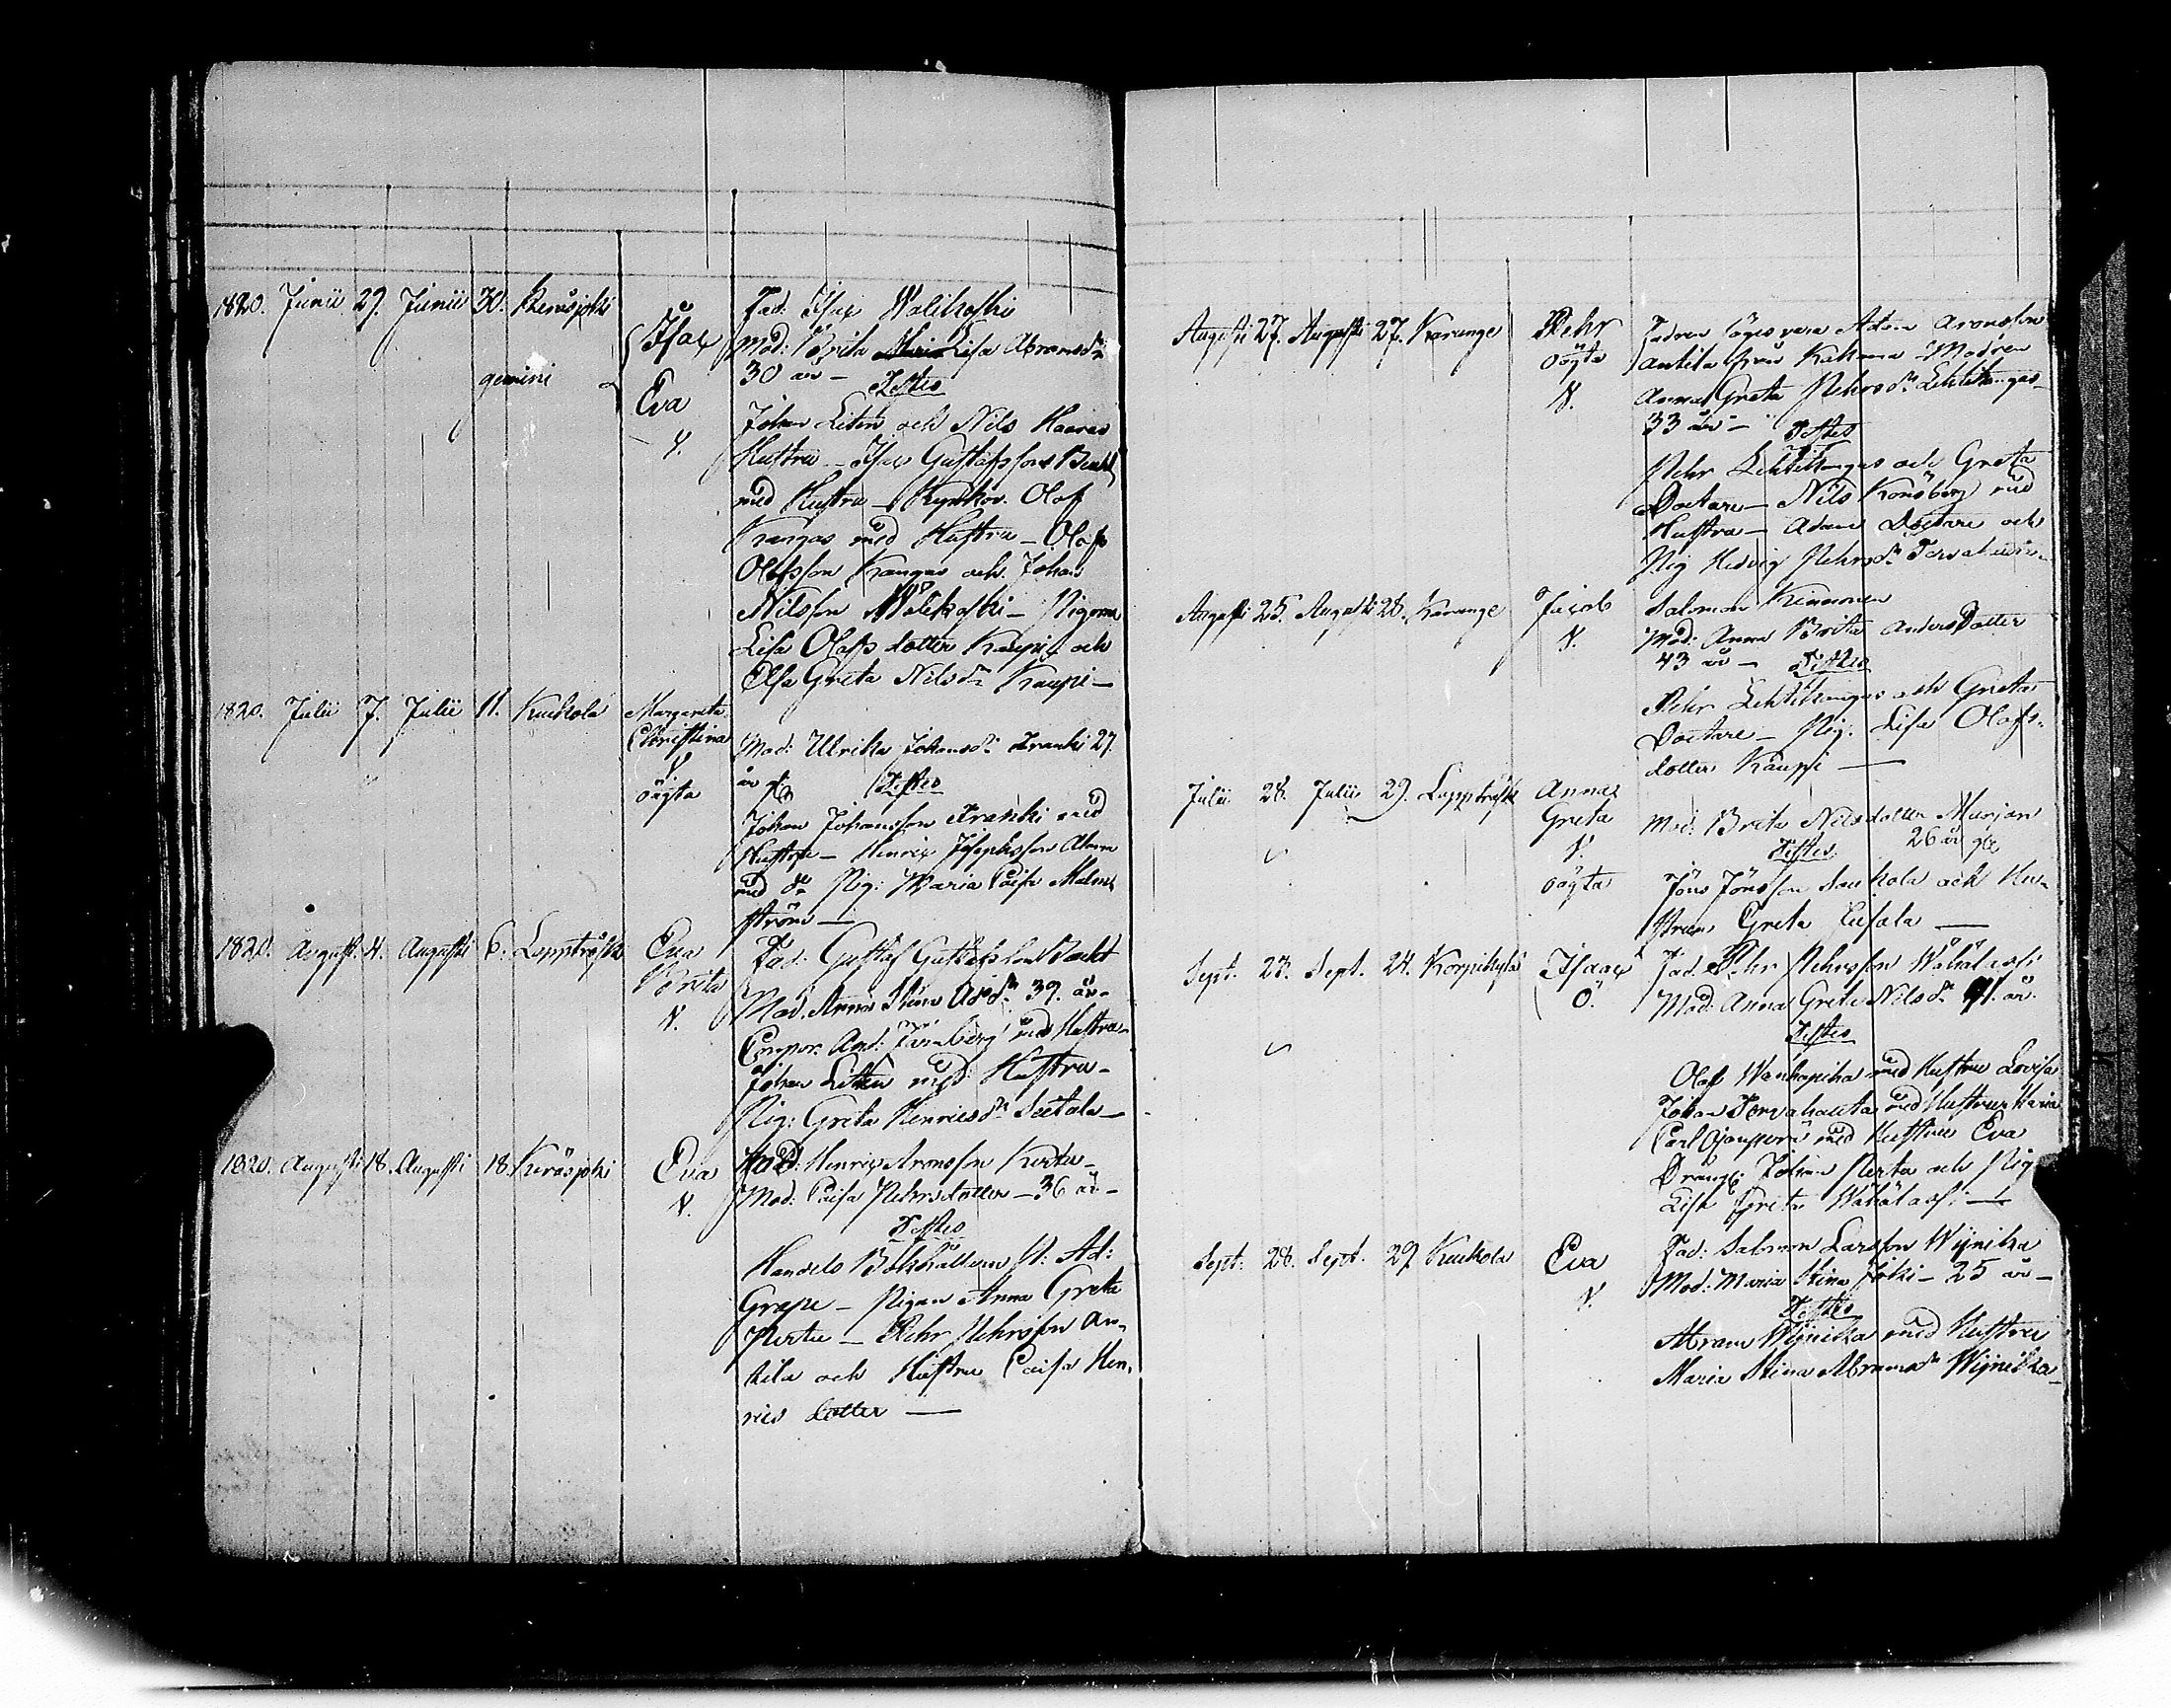 1820. Junii 29. Junii 30. Keräsjoki
gemini
Isac
Eva
Fad: Isac Walikoski
Mod: Brita Lisa Abramsdr
30 år — Testes
Johan Liten och Nils
Hustru — Isac Gustafsson
med Hustru — Olof
Kangas med Hustru — Olof
Olofsson Kangas och Johan
Nilsson Walikoski — Pigorna
Lisa Olofsdotter Kaupi och
Elsa Greta Nilsdr Kaupi —
1820. Julii 7. Julii 11. Kuckola
Margareta
Christina
oägta
Mod: Ulrika Johansdr Franki 27
år Testes
Johan Johansson Franki med
Hustru — Henric Josephsson
med dr Pig: Maria Caisa Malm
ström —
1820. August. 4. Augusti 6. Lappträsk
Eva
Brita
N.
Fad: Gustaf Gustafsson
Mod. Anna Stina 39. år —
Corpor. And: Järnberg med Hustru —
Johan Litten med Hustru —
Pig: Greta Henricsdr
1820. Augusti 18. Augusti 18. Keräsjoki
Eva
N.
Fad: Henric Aronsson
Mod: Caisa Pehrsdotter — 36 år —
Testes
Handels Bokhållaren Ad:
Grape — Pigan Anna Greta
Pertu — Pehr Pehrsson An-
tila och Hustru Caisa Hen-
rics dotter —
Augusti 27. Augusti 27. Karunge
Pehr
oägta
N.
Fadren säges vara Adam Aronsson
Antila från Kakama Modren
Anna Greta Pehrsdr Lehtikangas
33 år — Testes
Pehr Lehtikangas och Greta
Doctare — Nils Kornberg med
Hustru — Adam Doctare och
Pig Hedvig Pehrsdr
Augusti 25. Augusti 28. Karunge
Jacob
N.
Salomon Kinnonen
Mod: Anna Brita Andersdotter
43 år — Testes
Pehr Lehtikangas och Greta
Doctare — Pig: Lisa Olofs-
dotter Kaupi —
Julii 28. Julii 29. Lappträsk
Anna
Greta
N.
oägta
Mod: Brita Nilsdotter Marjan
26 år
Testes
Jöns Jönsson och Hu-
strun Greta —
Sept. 23. Sept. 24. Korpikylä
Isaac
Ö.
Fad: Pehr Pehrsson
Mod: Anna Greta Nilsdr 41. år.
Testes
Olof Wanhapiha med Hustru Lovisa
Johan Tervahauta med Hustru Maria
Carl med Hustru Eva
Dräng: Johan och Pig
Lisa Greta —
Sept: 28. Sept. 29 Kuckola
Eva
N.
Fad: Salomon Larsson Wijnikka
Mod: Maria Stina Joki — 25 år —
Testes
Abram Wijnikka med Hustru
Maria Stina Abramsdr Wijnikka —